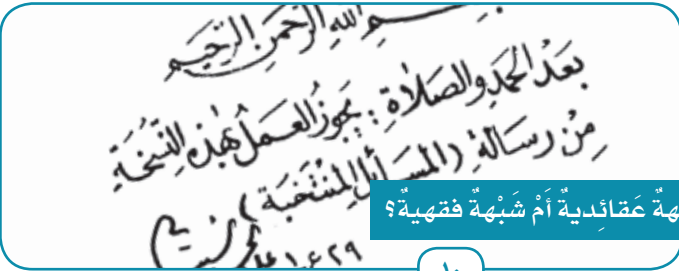 بسم الله الرحمن الرحيم
بعد الحمد والصلاة : يجوز العمل بهذه النسخة
من رسالة (المسائل المنتخبة)
هةٌ عَقائديةٌ أَمْ شَبْهةٌ فقهيةٌ؟